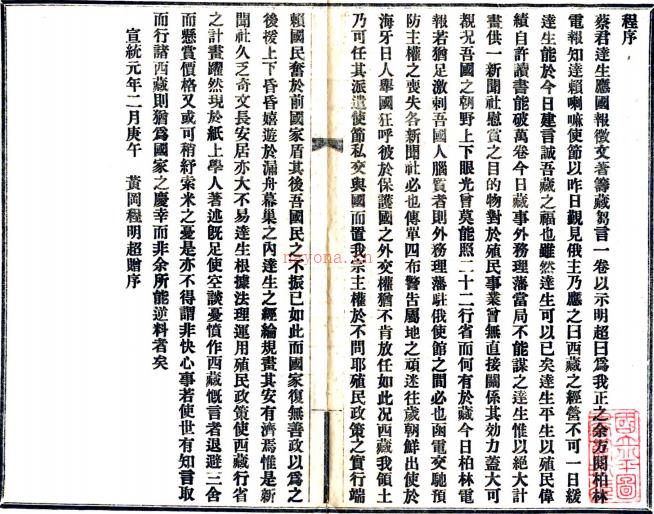 程序
蔡君達生應國報徵文著籌藏芻言一卷以示明超曰爲我正之余方閱柏林
電報知達賴喇嘛使節以昨日覲見俄主乃應之曰西藏之經營不可一日緩
達生能於今日建言誠吾藏之福也雖然達生可以已矣達生平生以殖民偉
績自許讀書能破萬卷今日藏事外務理藩當局不能謀之達生惟以絕大計
畫供一新聞社慰賞之目的物對於殖民事業曾無直接關係其効力蓋大可
覩況吾國之朝野上下眼光曾莫能照二十二行省而何有於藏今日柏林電
報若猶足激刺吾國人腦質者則外務理藩駐俄使館之間必也函電交馳預
防主權之喪失各新聞社必也傳單四布警告屬地之頑迷往歲朝鮮出使於
海牙日人舉國狂呼彼於保護國之外交權猶不肯放任如此況西藏我領土
乃可任其派遣使節私交與國而置我宗主權於不問耶殖民政策之實行端
賴國民奮於前國家盾其後吾國民之不振已如此而國家復無善政以爲之
後援上下昏昏嬉遊於漏舟幕巢之內達生之經綸規畫其安有濟焉惟是新
聞社久乏奇文長安居亦大不易達生根據法理運用殖民政策使西藏行省
之計畫躍然現於紙上學人著述旣足使空談憂憤作西藏慨言者退避三舍
而懸賞價格又或可稍紓索米之憂是亦不得謂非快心事若使世有知言取
而行諸西藏則猶爲國家之慶幸而非余所能逆料者矣
宣統元年二月庚午　黃岡程明超贈序